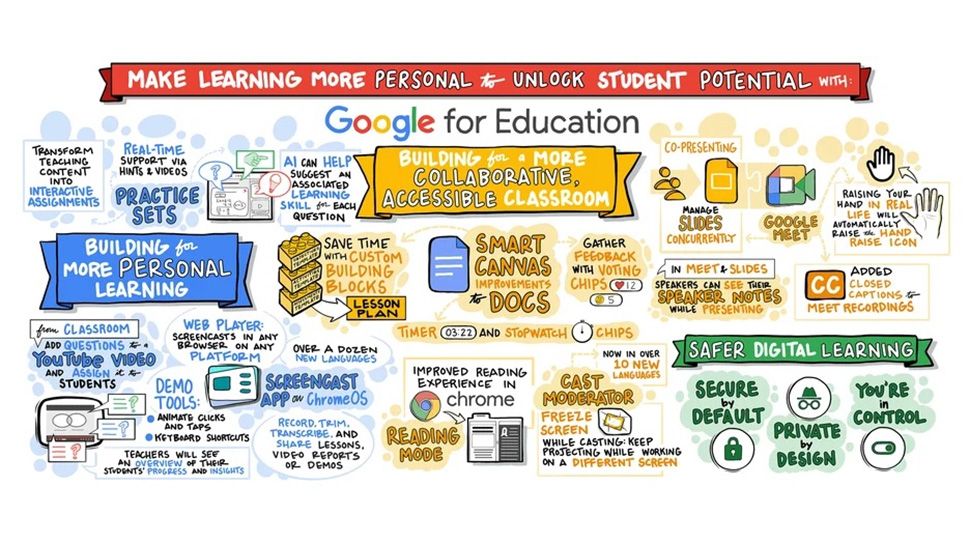 MAKE LEARNING MORE PERSONAL to UNLOCK STUDENT POTENTIAL WITH:
Google for Education
TRANSFORM
TEACHING
CONTENT
INTO
INTERACTIVE
ASSIGNMENTS
REAL-TIME
SUPPORT VIA
HINTS & VIDEOS
PRACTICE
SETS
AI CAN HELP
SUGGEST AN
ASSOCIATED
LEARNING
SKILL for EACH
QUESTION
BUILDING for
MORE PERSONAL
LEARNING
from CLASSROOM
ADD QUESTIONS to a
YouTube VIDEO
AND ASSIGN it to
STUDENTS
WEB PLAYER:
SCREENCASTS IN ANY
BROWSER ON ANY
PLATFORM
OVER A DOZEN
NEW LANGUAGES
SCREENCAST
APP on ChromeOS
DEMO
TOOLS:
• ANIMATE CLICKS
AND TAPS
• KEYBOARD SHORTCUTS
RECORD, TRIM,
TRANSCRIBE, AND
SHARE LESSONS,
VIDEO REPORTS
OR DEMOS
TEACHERS WILL SEE
AN OVERVIEW OF THEIR
STUDENTS' PROGRESS AND INSIGHTS
BUILDING for a MORE
COLLABORATIVE,
ACCESSIBLE CLASSROOM
SAVE TIME
WITH CUSTOM
BUILDING
BLOCKS
TEMPLATE
TEMPLATE
TEMPLATE
TEMPLATE
LESSON
PLAN
SMART
CANVAS
IMPROVEMENTS
to DOCS
GATHER
FEEDBACK
WITH VOTING
CHIPS
12
5
TIMER 03:22 AND STOPWATCH CHIPS
IMPROVED READING
EXPERIENCE IN
chrome
READING
MODE
NOW IN OVER
10 NEW
LANGUAGES
CAST
MODERATOR
FREEZE
SCREEN
WHILE CASTING: KEEP
PROJECTING WHILE WORKING
ON A DIFFERENT SCREEN
CO-PRESENTING
MANAGE
SLIDES
CONCURRENTLY
GOOGLE
MEET
RAISING YOUR
HAND IN REAL
LIFE WILL
AUTOMATICALLY
RAISE the HAND
RAISE ICON
IN MEET & SLIDES
SPEAKERS CAN SEE THEIR
SPEAKER NOTES
WHILE PRESENTING
CC
ADDED
CLOSED
CAPTIONS to
MEET RECORDINGS
SAFER DIGITAL LEARNING
SECURE
by
DEFAULT
PRIVATE
by
DESIGN
YOU'RE
in
CONTROL